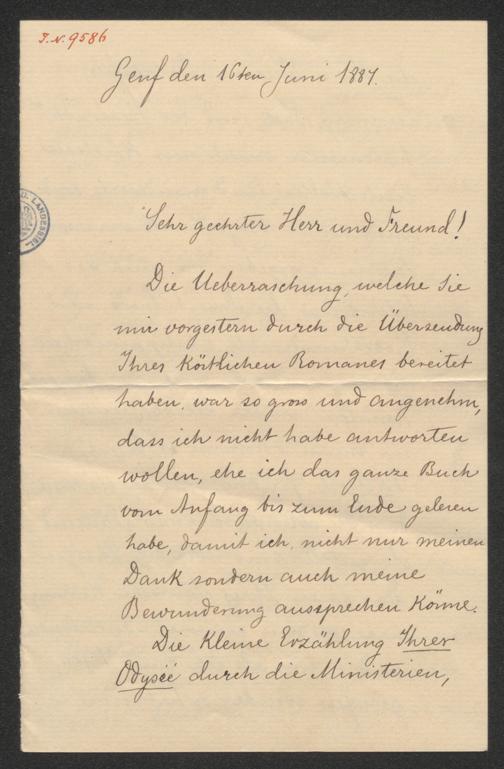 I.N. 9586
Genf den 16ten Juni 1887.
Sehr geehrter Herr und Freund!
Die Ueberraschung, welche Sie
mir vorgestern durch die Übersendung
Ihres köstlichen Romanes bereitet
haben, war so gross und angenehm,
dass ich nicht habe antworten
wollen, ehe ich das ganze Buch
vom Anfang bis zum Ende gelesen
habe, damit ich nicht nur meinen
Dank sondern auch meine
Bewunderung aussprechen könne.
Die kleine Erzählung Ihrer
Odyseé durch die Ministerien,